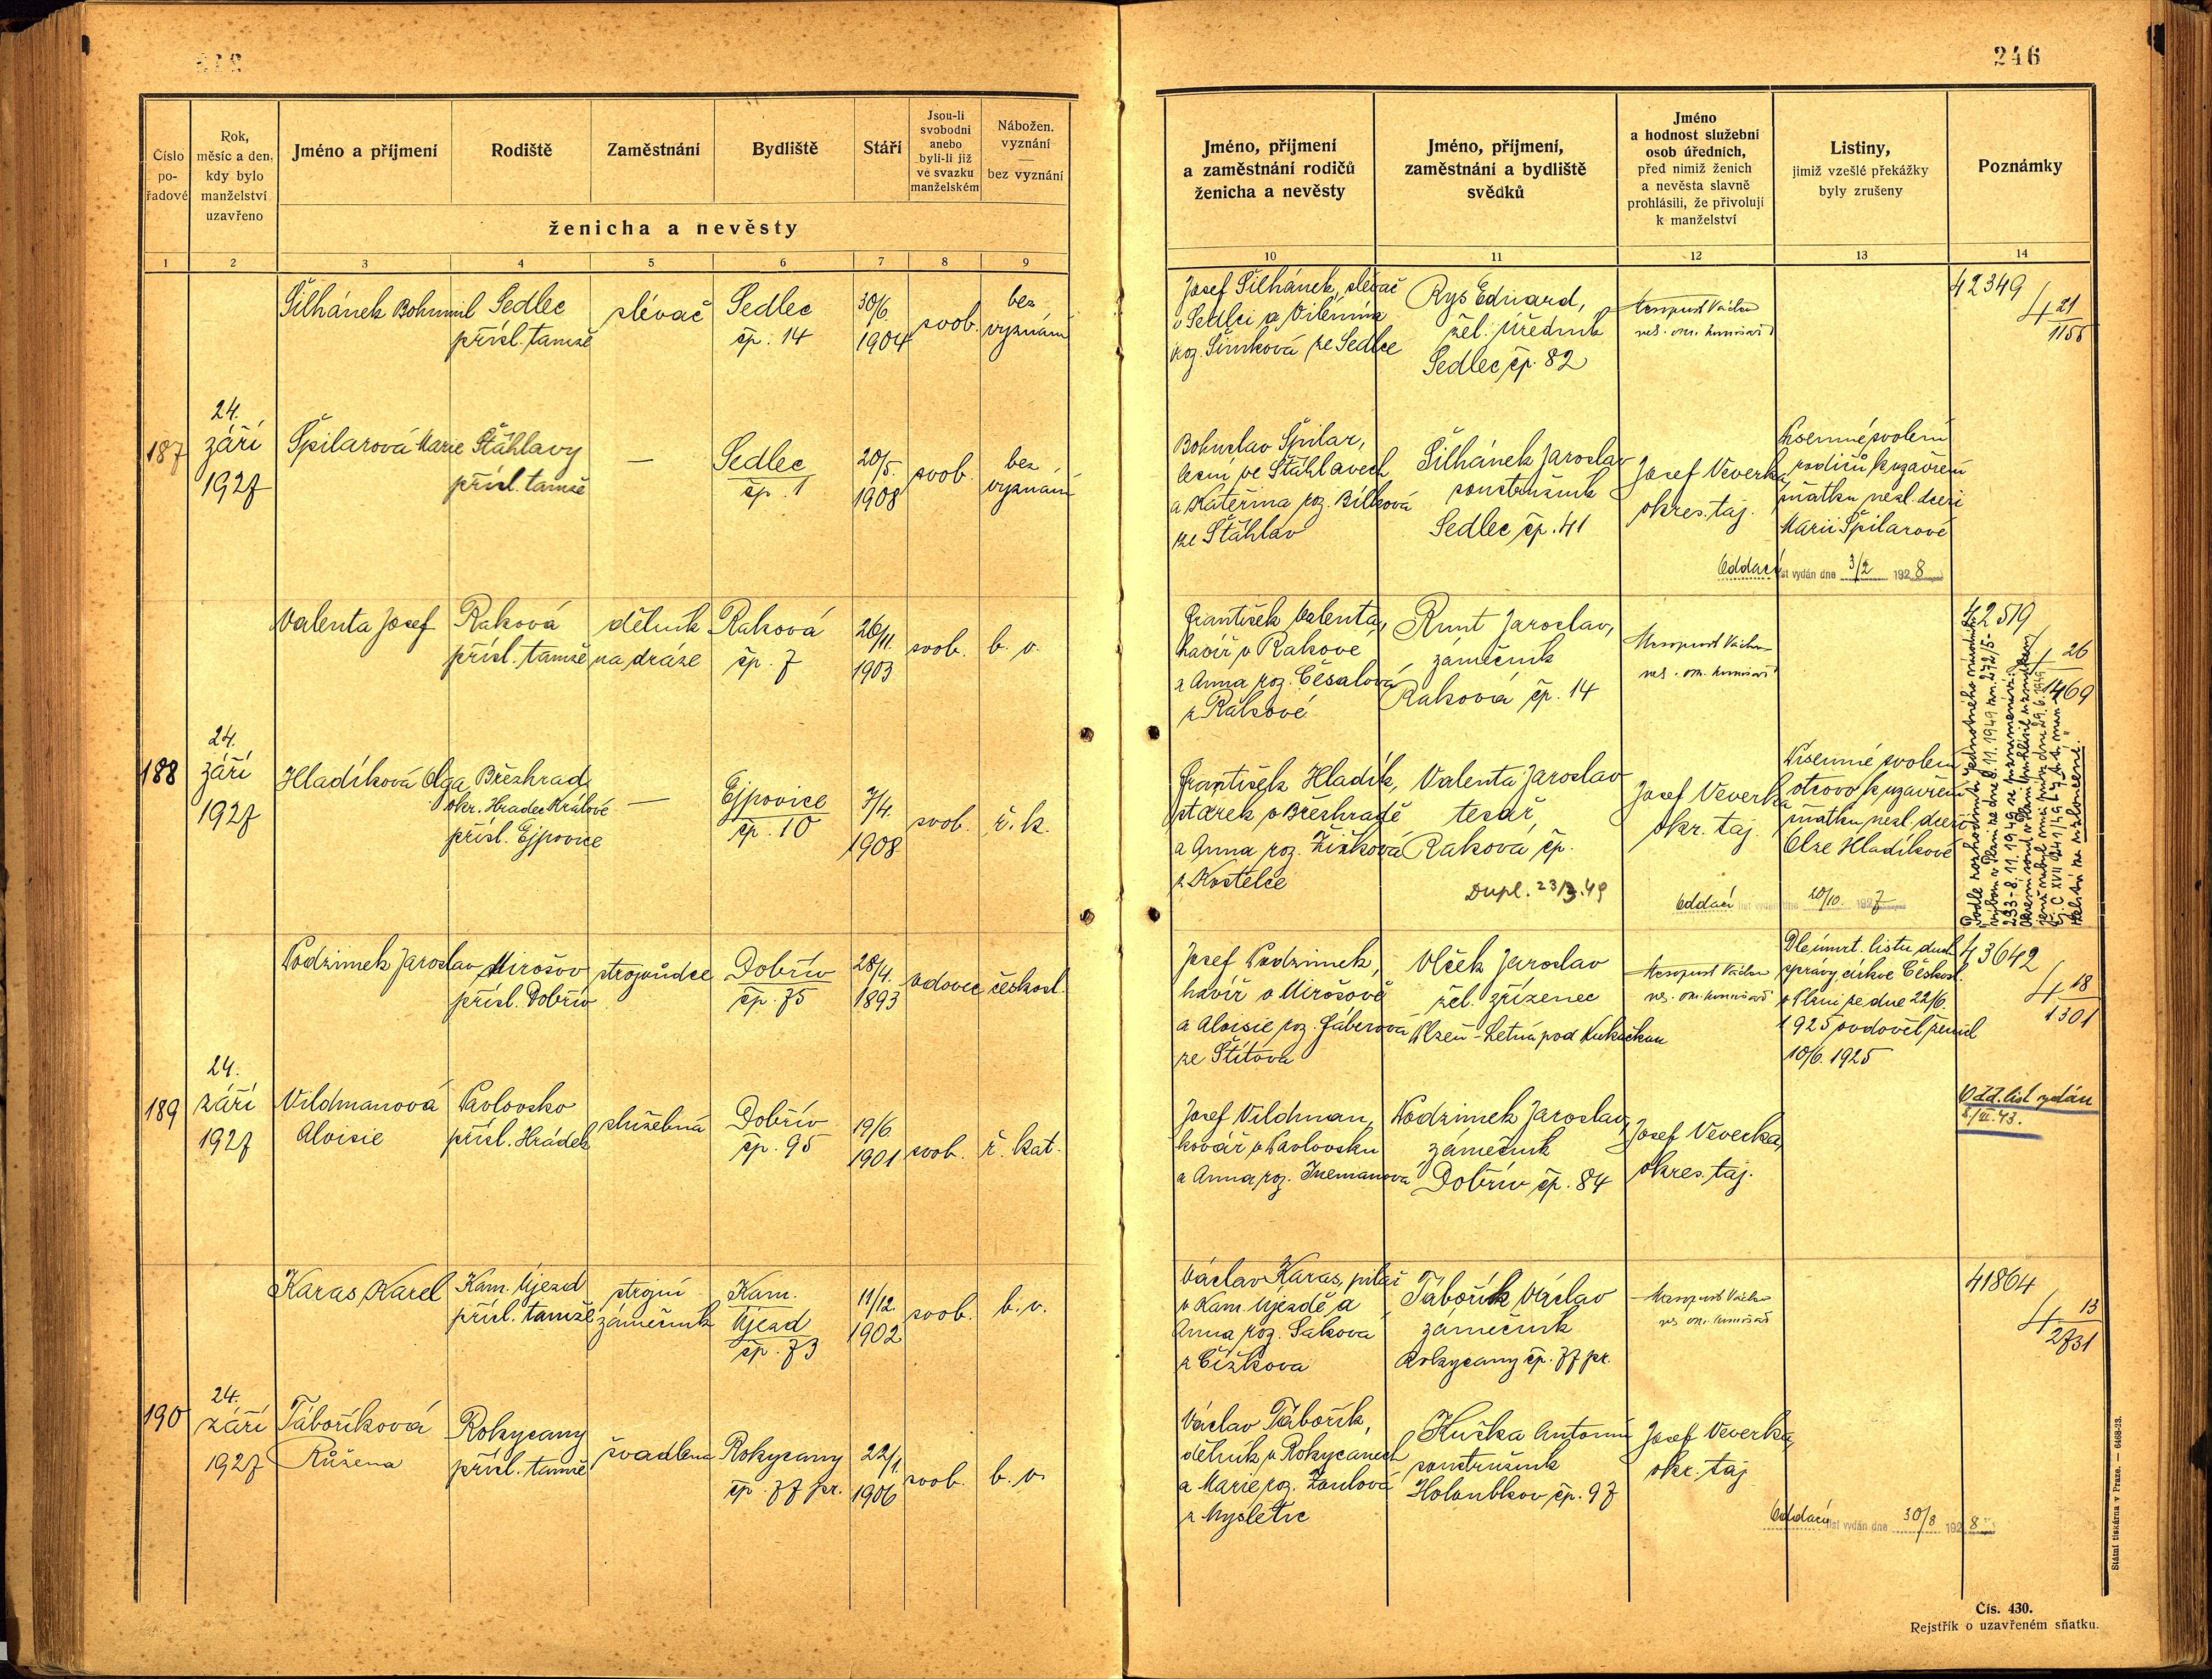 246
Číslo
po-
řadové
Rok,
měsíc a den,
kdy bylo
manželství
uzavřeno
Jméno a příjmení
Rodiště
Zaměstnání
Bydliště
Stáří
Jsou-li
svobodni
anebo
byli-li již
ve svazku
manželském
Nábožen.
vyznání
—
bez vyznání
ženicha a nevěsty
1 2 3 4 5 6 7 8 9
Šilhánek Bohumil
Sedlec
přísl. tamže
slévač
Sedlec
čp. 14
30/6.
1904
svob.
bez
vyznání
187
24.
září
1927
Špilarová Marie
Šťáhlavy
přísl. tamže
—
Sedlec
čp. 1
20/5.
1908
svob.
bez
vyznání
Valenta Josef
Raková
přísl. tamže
dělník
na dráze
Raková
čp. 7
26/11.
1903
svob.
b. v.
188
24.
září
1927
Hladíková Olga
Březhrad
okr. Hradec Králové
přísl. Ejpovice
—
Ejpovice
čp. 10
7/4.
1908
svob.
ř. k.
Podzimek Jaroslav
Mirošov
přísl. Dobřív
strojvůdce
Dobřív
čp. 75
28/4.
1893
vdovec
českosl.
189
24.
září
1927
Vildmanová
Aloisie
Pavlovsko
přísl. Hrádek
služebná
Dobřív
čp. 95
19/6
1901
svob.
ř. kat.
Karas Karel
Kam. Újezd
přísl. tamže
strojní
zámečník
Kam.
Újezd
čp. 73
11/12.
1902
svob.
b. v.
190
24.
září
1927
Táboříková
Růžena
Rokycany
přísl. tamže
švadlena
Rokycany
čp. 77 pr.
22/1.
1906
svob.
b. v.
Jméno, příjmení
a zaměstnání rodičů
ženicha a nevěsty
Jméno, příjmení,
zaměstnání a bydliště
svědků
Jméno
a hodnost služební
osob úředních,
před nimiž ženich
a nevěsta slavně
prohlásili, že přivolují
k manželství
Listiny,
jimiž vzešlé překážky
byly zrušeny
Poznámky
10 11 12 13 14
Josef Šilhánek, slévač
v Sedlci a Vilémína
roz. Šimková ze Sedlce
Rys Eduard,
žel. úředník
Sedlec čp. 82
Václav
42349
21
1155
Bohuslav Špilar,
ve Šťáhlavech
a Kateřina roz. Bílková
ze Šťáhlav
Šilhánek Jaroslav
soustružník
Sedlec čp. 41
Josef Veverka,
okres. taj.
Písemné svolení
rodičů k uzavření
sňatku nezl. dceři
Marii Špilarové
Oddací list vydán dne 3/2 1928
František Valenta,
havíř v Rakové
a Anna roz. Česalová
z Rakové
Runt Jaroslav,
zámečník
Raková čp. 14
Václav
42519
26
1469
František Hladík,
v Březhradě
a Anna roz. Žižková
z Kostelce
Valenta Jaroslav
tesař,
Raková čp.
Dupl. 23/3.49
Josef Veverka
okr. taj.
Písemné svolení
otcovo k uzavření
sňatku nezl. dceři
Olze Hladíkové
Oddací list vydán dne 20/10. 1927
Josef Podzimek,
havíř v Mirošově
a Aloisie roz. Fáberová
ze Štítova
Vlček Jaroslav
žel. zřízenec
Plzeň - Letná pod
Václav
Dle úmrt. listu duch.
správy církve Českosl.
v Plzni ze dne 22/6.
1925 ovdověl ženich
10/6. 1925
43642
18
1301
Josef Vildman,
kovář v Pavlovsku
a Anna roz.
Podzimek Jaroslav,
zámečník
Dobřív čp. 84
Josef Veverka,
okres. taj.
Odd. list vydán
8./III. 43.
Václav Karas, pilař
v Kam. Újezdě a
Anna roz. Saková
z Čížkova
Tábořík Václav
zámečník
Rokycany čp. 77 pr.
Václav
41864
13
2731
Václav Tábořík,
dělník v Rokycanech
a Marie roz.
z Mysletic
Kuška Antonín
soustružník
Holoubkov čp. 97
Josef Veverka,
okr. taj.
Oddací list vydán dne 30/8 1928
Státní tiskárna v Praze. — 6468-23.
Čís. 430.
Rejstřík o uzavřeném sňatku.